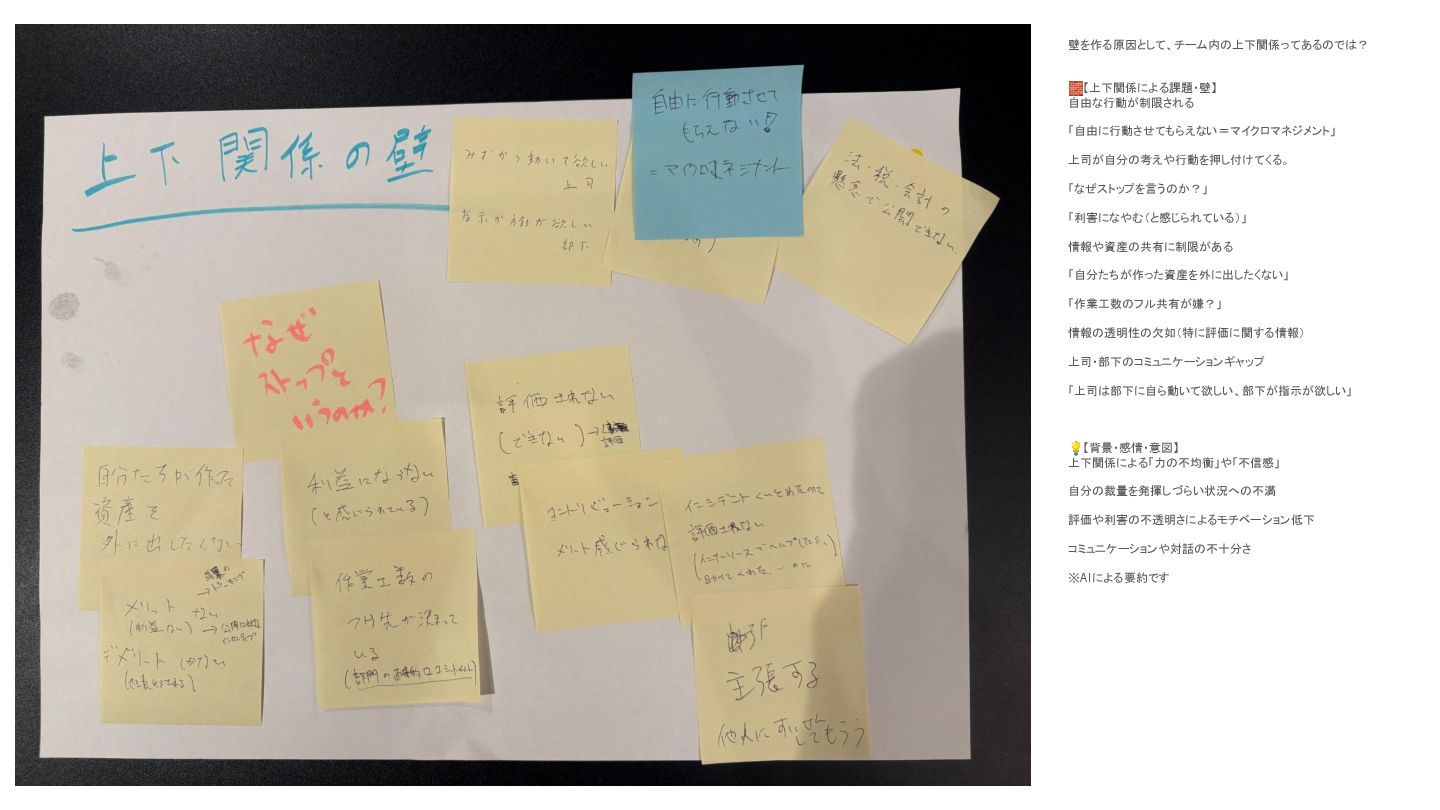 上下関係の壁
みずから動いて欲しい
上司
指示か方針が欲しい
部下
自由に行動させて
もらえない!
=マイクロマネジメント
法・税・会計の
懸念で公開できない
なぜ
ストップを
いうのか?
評価されない
(できない)→
評価
自分たちが作った
資産を
外に出したくない
利益にならない
(と感じられている)
コントリビューション
メリット感じられな
インシデントくいとめたのに
評価されない
(インナーソースでヘルプしたら、
助けてくれた…のに
成果の
メリット ない
(利益ない)
デメリット しかない
作業工数の
フリ先が決まって
いる
主張する
他人にすいせん
してもらう
壁を作る原因として、チーム内の上下関係ってあるのでは?
🧱【上下関係による課題・壁】
自由な行動が制限される
「自由に行動させてもらえない=マイクロマネジメント」
上司が自分の考えや行動を押し付けてくる。
「なぜストップを言うのか?」
「利害になやむ(と感じられている)」
情報や資産の共有に制限がある
「自分たちが作った資産を外に出したくない」
「作業工数のフル共有が嫌?」
情報の透明性の欠如(特に評価に関する情報)
上司・部下のコミュニケーションギャップ
「上司は部下に自ら動いて欲しい、部下が指示が欲しい」
💡【背景・感情・意図】
上下関係による「力の不均衡」や「不信感」
自分の裁量を発揮しづらい状況への不満
評価や利害の不透明さによるモチベーション低下
コミュニケーションや対話の不十分さ
※AIによる要約です